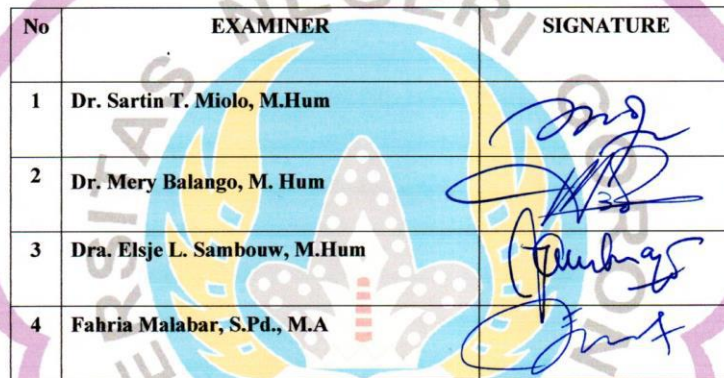 No EXAMINER SIGNATURE
1 Dr. Sartin T. Miolo, M.Hum
2 Dr. Mery Balango, M. Hum
3 Dra. Elsje L. Sambouw, M.Hum
4 Fahria Malabar, S.Pd., M.A